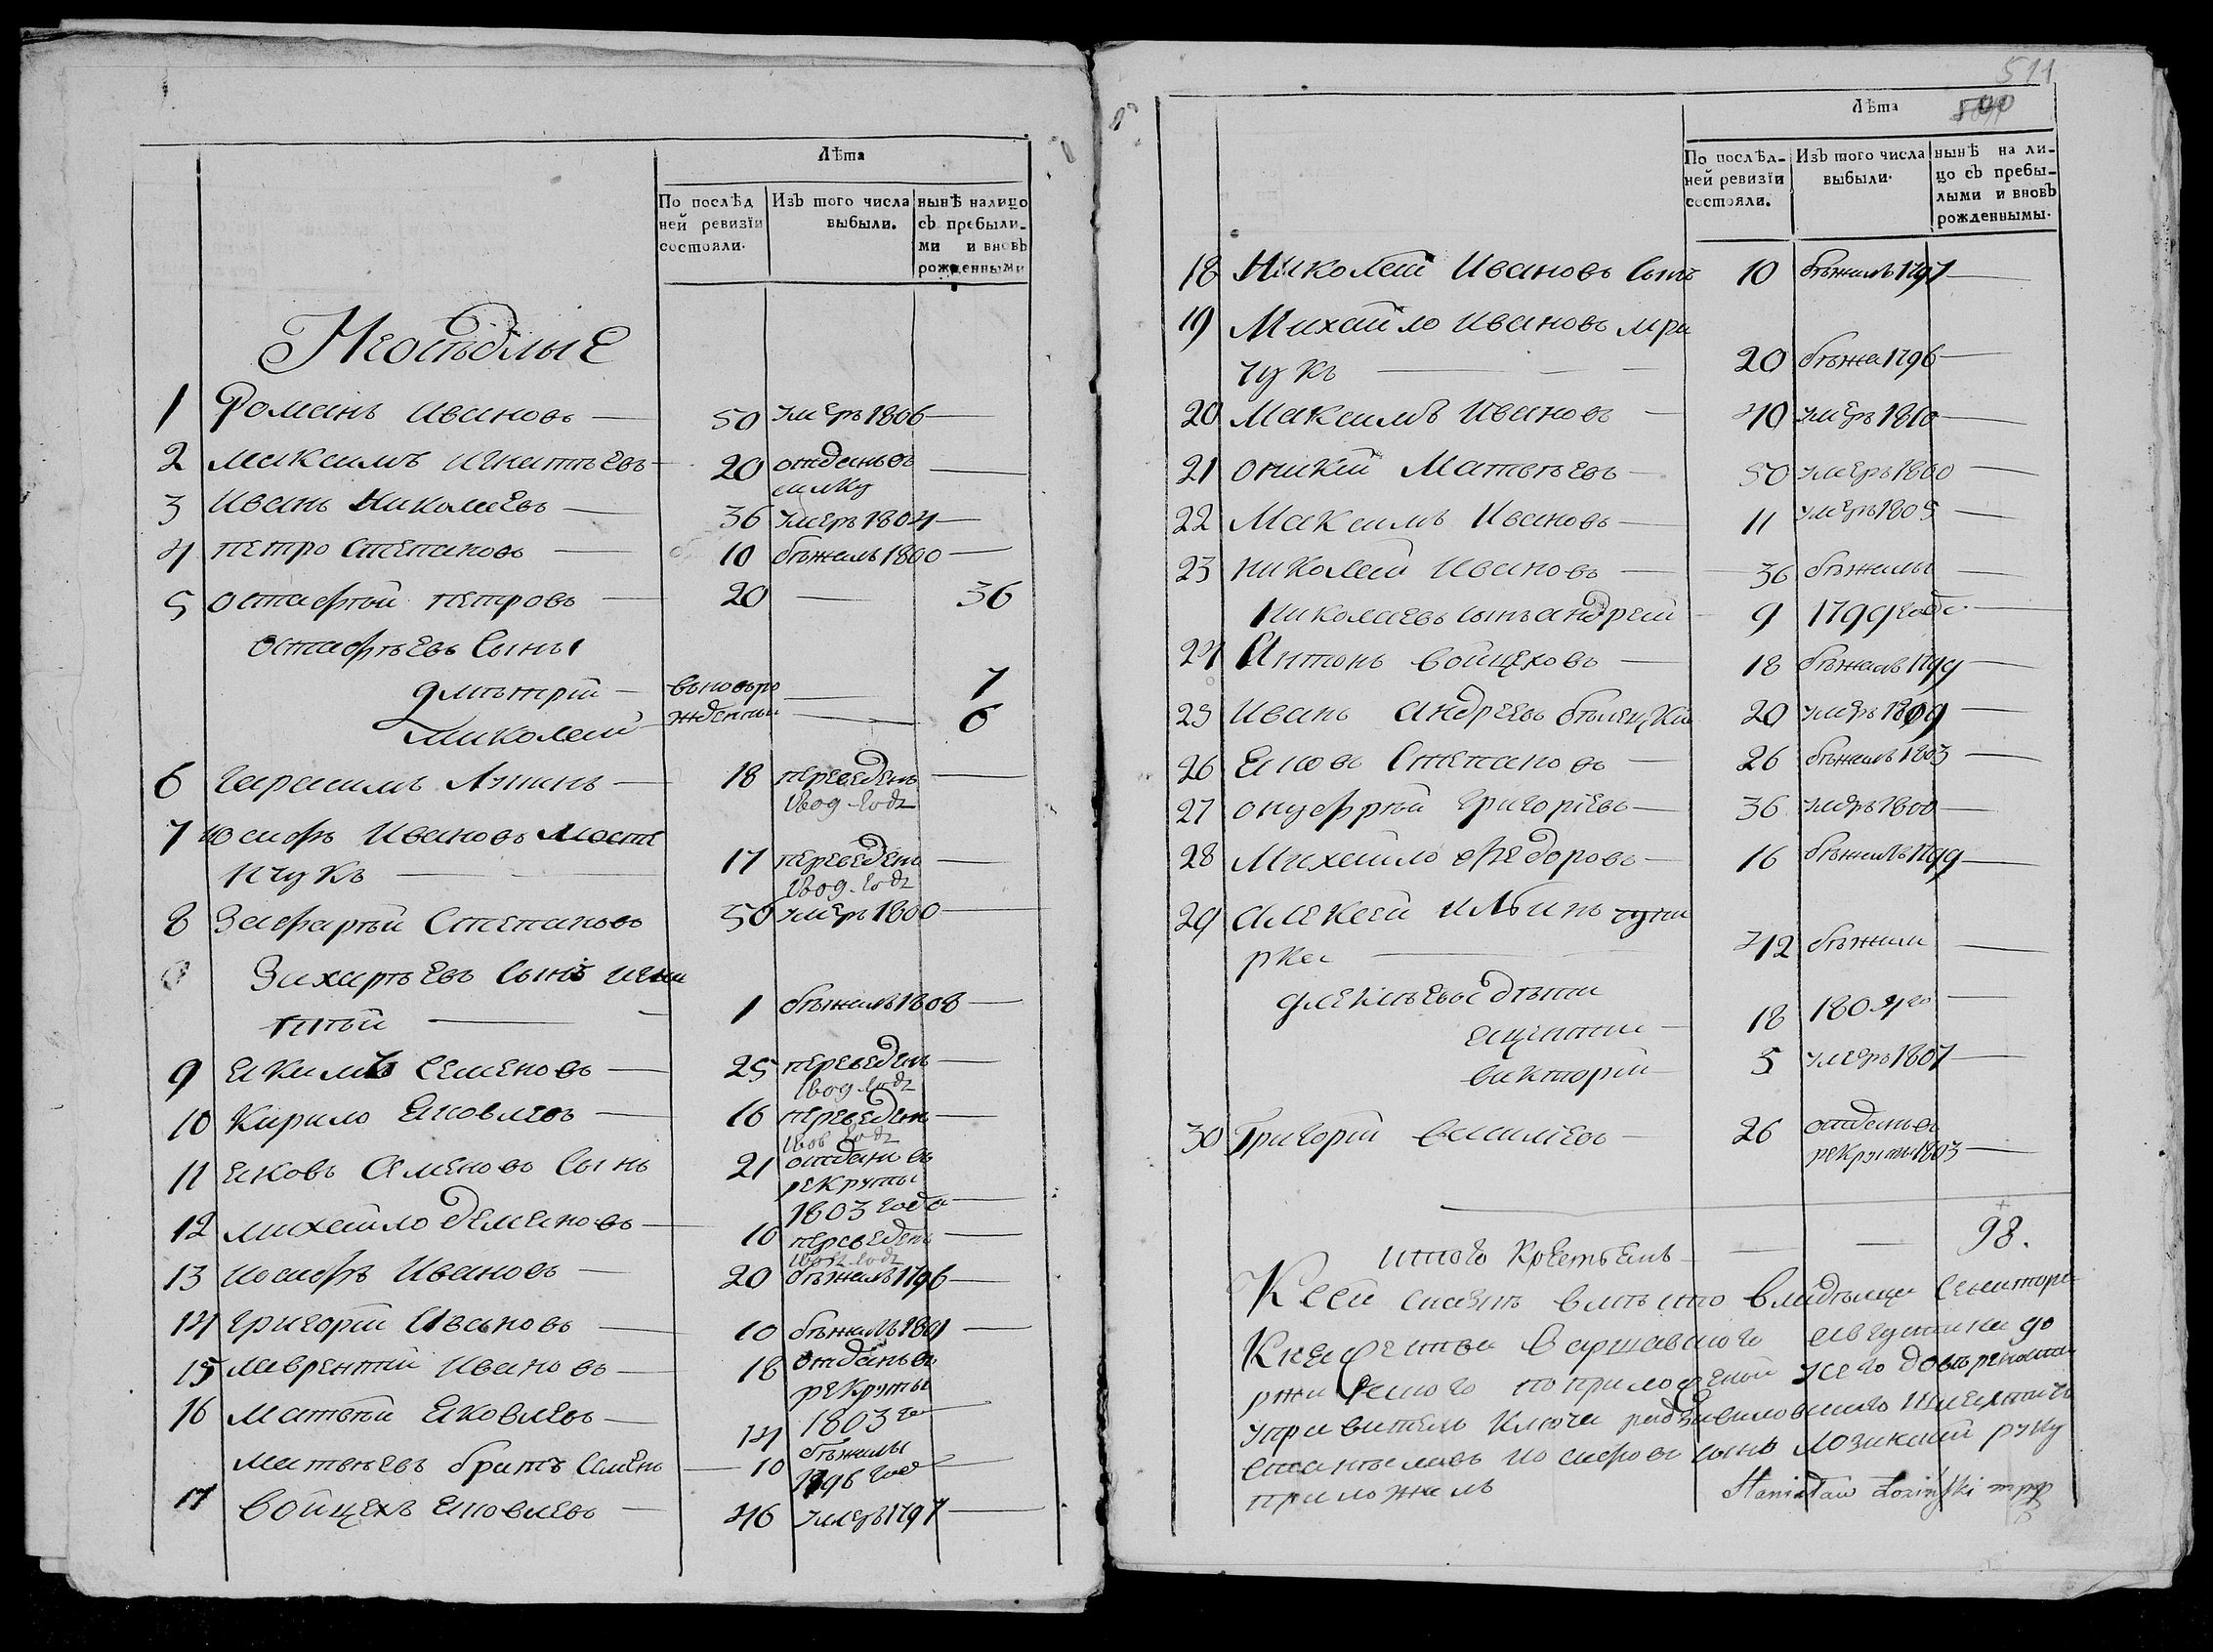 Лѣта
По послѣд
ней ревизїи
состояли.
Изъ того числа
выбыли.
нынѣ налицо
съ пребыли-
ми и вновъ
рожденными
Неосѣдлые
1 Романъ Ивановъ — 50 умеръ 1806 —
2 Максимъ Игнатьевъ — 20 отданъ въ —
3 Иванъ Николаевъ — 36 умеръ 1804 —
4 Петро Степановъ — 10 бѣжалъ 1800 —
5 Остафѣй Петровъ — 20 — 36
Остафѣевъ Сыны
Дмытрій — вьновьро — 7
Миколай — жденнии — 6
6 Герасимъ Лунинъ — 18 переведенъ —
1809 годъ
7 Юсифъ Ивановъ
нчукъ — 17 переведенъ —
1809 годъ
8 Захарѣй Степановъ 50 умеръ 1800 —
Захарѣевъ Сынъ Игна
тѣй — 1 бѣжалъ 1808 —
9 Екимъ Семеновъ — 25 переведенъ —
1809 годъ
10 Кирило Яковлевъ — 16 переведенъ —
годъ
11 Яковъ Семеновъ Сынъ 21 отданъ въ
рекруты
1803 года —
12 Михайло Деменовъ — 10 переведенъ —
годъ
13 Иосифъ Ивановъ — 20 бѣжалъ 1796 —
14 Григорій Ивановъ — 10 бѣжалъ 1801 —
15 Лаврентій Ивановъ — 18 отданъ въ
рекруты
1803 го —
16 Матвѣй Яковлевъ — 14 бѣжалы
Матвѣевъ братъ Семенъ — 10 1796 год —
17 Войцехъ Яковлевъ — 46 умеръ 1797 —
511
Лѣта
По послѣд-
ней ревизїи
состояли.
Изъ того числа
выбыли.
нынѣ на ли-
цо съ пребы-
лыми и вновъ
рожденнымы.
18 Николай Ивановъ Сынъ 10 бѣжалъ 1797 —
19 Михайло Ивановъ мри
чукъ — 20 бѣжа 1796 —
20 Максимъ Ивановъ — 40 умеръ 1810 —
21 Оникій Матвѣевъ — 50 умеръ 1800 —
22 Максимъ Ивановъ — 11 умеръ 1805 —
23 Николай Ивановъ — 36 бѣжалы —
Николаевъ сынъ Андрей — 9 1799 года —
24 Антонъ Войцеховъ — 18 бѣжалъ 1799 —
25 Иванъ Андреевъ 20 умеръ 1809 —
26 Яковъ Степановъ — 26 бѣжалъ 1803 —
27 Онуфрѣй Григоріевъ — 36 умеръ 1800 —
28 Михайло Федоровъ — 16 бѣжалъ 1799 —
29 Алексей Ильинъ
рка — 42 бѣжали —
Алексѣевы дѣти
18 1804 го —
Викторій — 5 умеръ 1807 —
30 Григорій Василіевъ — 26 отданъ въ
рекруты 1803 —
Итого Крестьянъ — — 98.
К сей сказкѣ вмѣсто владѣльца Сенатора
Княжества Варшавскаго Августина
по приложеной его довѣренности
управитель ключа радзивиловскаго
Станиславъ Иосифовъ сынъ Лозинскій руку
приложилъ
Stanisław Łoziński mpp